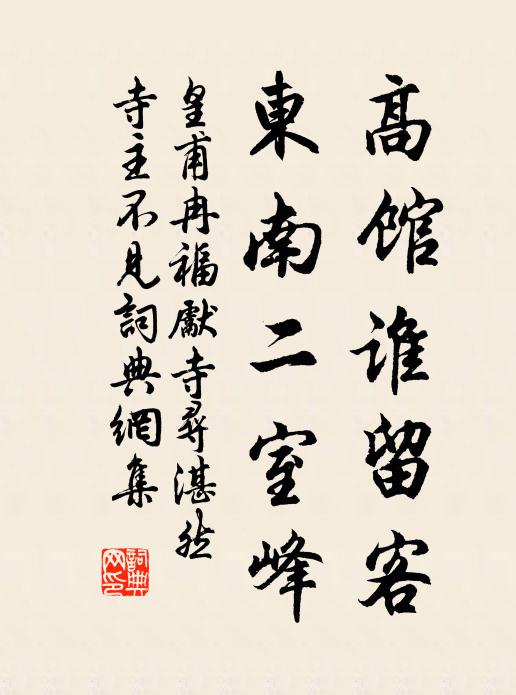 高館誰留客
東南二室峰
皇甫冉福獻寺尋湛然
寺主不見詞典網集
詞典網印